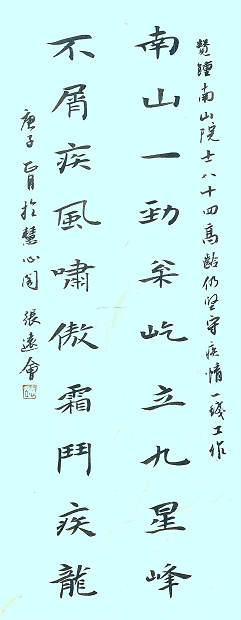 赞鐘南山院士八十四高龄仍坚守疫情一线工作
南山一劲枀屹立九星峰
不屑疾風嘯傲霜鬥疫龍
庚子正月於慧心阁 張遠會